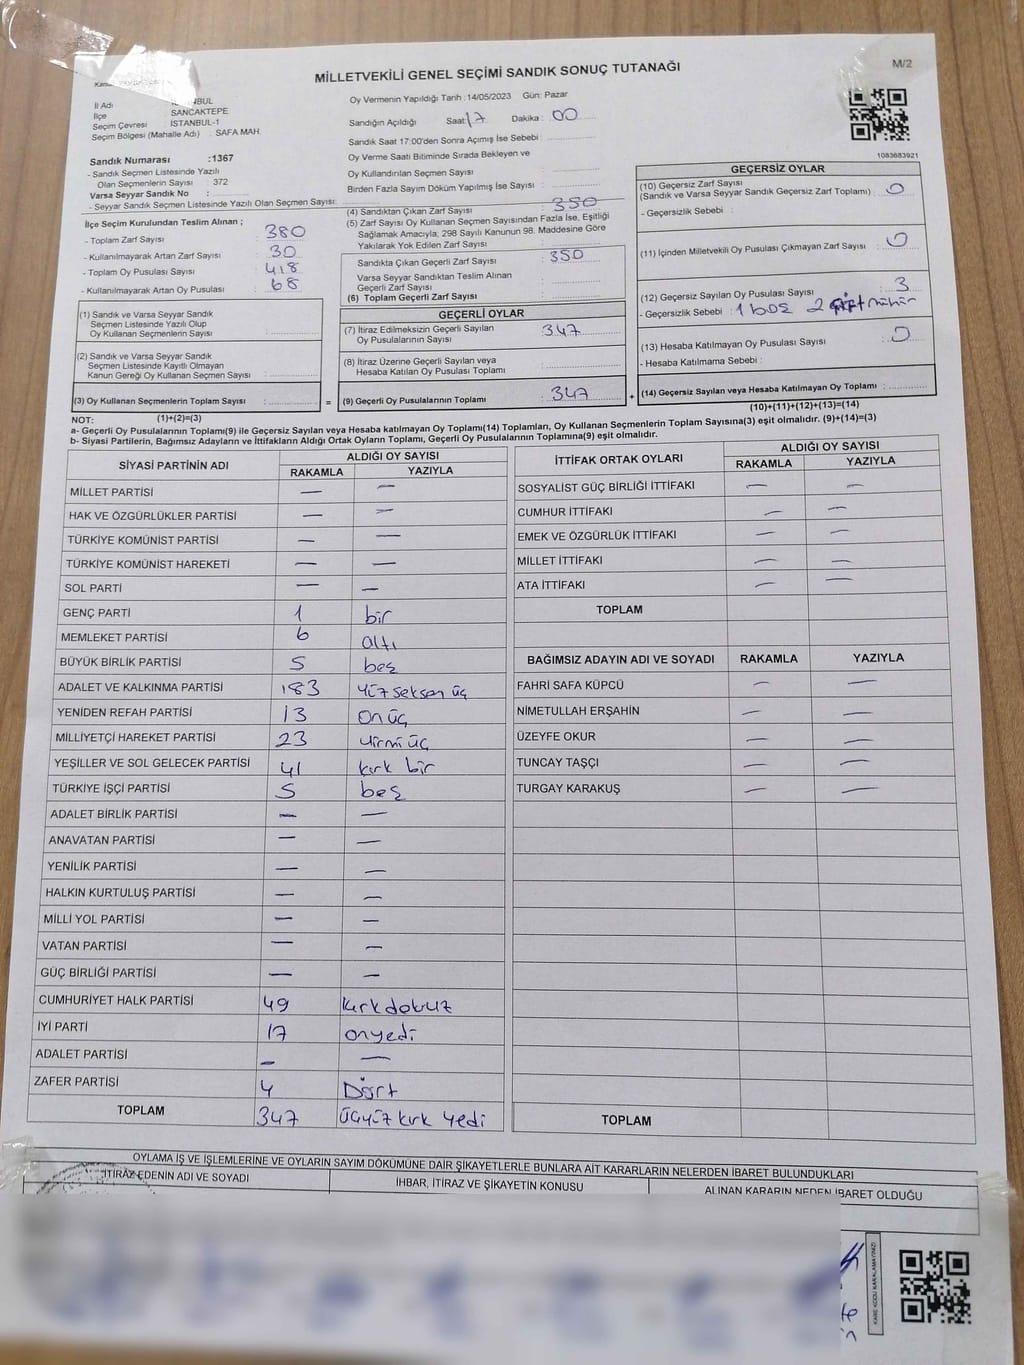 MİLLETVEKİLİ GENEL SEÇİMİ SANDIK SONUÇ TUTANAĞI
M/2
İl Adı
İlçe SANCAKTEPE
Seçim Çevresi İSTANBUL-1
Seçim Bölgesi (Mahalle Adı) : SAFA MAH.
Sandık Numarası :1367
- Sandık Seçmen Listesinde Yazılı
Olan Seçmenlerin Sayısı : 372
Varsa Seyyar Sandık No :
- Seyyar Sandık Seçmen Listesinde Yazılı Olan Seçmen Sayısı:
İlçe Seçim Kurulundan Teslim Alınan ;
- Toplam Zarf Sayısı : 380
- Kullanılmayarak Artan Zarf Sayısı : 30
- Toplam Oy Pusulası Sayısı : 418
- Kullanılmayarak Artan Oy Pusulası : 68
(1) Sandık ve Varsa Seyyar Sandık
Seçmen Listesinde Yazılı Olup
Oy Kullanan Seçmenlerin Sayısı :
(2) Sandık ve Varsa Seyyar Sandık
Seçmen Listesinde Kayıtlı Olmayan
Kanun Gereği Oy Kullanan Seçmen Sayısı :
(3) Oy Kullanan Seçmenlerin Toplam Sayısı :
Oy Vermenin Yapıldığı Tarih : 14/05/2023 Gün: Pazar
Sandığın Açıldığı Saat: 17 Dakika : 00
Sandık Saat 17:00'den Sonra Açımış İse Sebebi :
Oy Verme Saati Bitiminde Sırada Bekleyen ve
Oy Kullandırılan Seçmen Sayısı :
Birden Fazla Sayım Döküm Yapılmış İse Sayısı :
(4) Sandıktan Çıkan Zarf Sayısı : 350
(5) Zarf Sayısı Oy Kullanan Seçmen Sayısından Fazla İse, Eşitliği
Sağlamak Amacıyla, 298 Sayılı Kanunun 98. Maddesine Göre
Yakılarak Yok Edilen Zarf Sayısı :
Sandıkta Çıkan Geçerli Zarf Sayısı : 350
Varsa Seyyar Sandıktan Teslim Alınan
Geçerli Zarf Sayısı :
(6) Toplam Geçerli Zarf Sayısı :
GEÇERLİ OYLAR
(7) İtiraz Edilmeksizin Geçerli Sayılan
Oy Pusulalarının Sayısı : 347
(8) İtiraz Üzerine Geçerli Sayılan veya
Hesaba Katılan Oy Pusulası Toplamı :
= (9) Geçerli Oy Pusulalarının Toplamı : 347 +
1083683921
GEÇERSİZ OYLAR
(10) Geçersiz Zarf Sayısı
(Sandık ve Varsa Seyyar Sandık Geçersiz Zarf Toplamı) : 0
- Geçersizlik Sebebi :
(11) İçinden Milletvekili Oy Pusulası Çıkmayan Zarf Sayısı : 0
(12) Geçersiz Sayılan Oy Pusulası Sayısı : 3
- Geçersizlik Sebebi : 1 boş 2 çift mühür
(13) Hesaba Katılmayan Oy Pusulası Sayısı : 0
- Hesaba Katılmama Sebebi :
(14) Geçersiz Sayılan veya Hesaba Katılmayan Oy Toplamı :
NOT: (1)+(2)=(3) (10)+(11)+(12)+(13)=(14)
a- Geçerli Oy Pusulalarının Toplamı(9) ile Geçersiz Sayılan veya Hesaba katılmayan Oy Toplamı(14) Toplamları, Oy Kullanan Seçmenlerin Toplam Sayısına(3) eşit olmalıdır. (9)+(14)=(3)
b- Siyasi Partilerin, Bağımsız Adayların ve İttifakların Aldığı Ortak Oyların Toplamı, Geçerli Oy Pusulalarının Toplamına(9) eşit olmalıdır.
SİYASİ PARTİNİN ADI ALDIĞI OY SAYISI
RAKAMLA YAZIYLA
MİLLET PARTİSİ — —
HAK VE ÖZGÜRLÜKLER PARTİSİ — —
TÜRKİYE KOMÜNİST PARTİSİ — —
TÜRKİYE KOMÜNİST HAREKETİ — —
SOL PARTİ — —
GENÇ PARTİ 1 bir
MEMLEKET PARTİSİ 6 altı
BÜYÜK BİRLİK PARTİSİ 5 beş
ADALET VE KALKINMA PARTİSİ 183 yüz seksen üç
YENİDEN REFAH PARTİSİ 13 on üç
MİLLİYETÇİ HAREKET PARTİSİ 23 yirmi üç
YEŞİLLER VE SOL GELECEK PARTİSİ 41 kırk bir
TÜRKİYE İŞÇİ PARTİSİ 5 beş
ADALET BİRLİK PARTİSİ — —
ANAVATAN PARTİSİ — —
YENİLİK PARTİSİ — —
HALKIN KURTULUŞ PARTİSİ — —
MİLLİ YOL PARTİSİ — —
VATAN PARTİSİ — —
GÜÇ BİRLİĞİ PARTİSİ — —
CUMHURİYET HALK PARTİSİ 49 kırk dokuz
İYİ PARTİ 17 onyedi
ADALET PARTİSİ — —
ZAFER PARTİSİ 4 Dört
TOPLAM 347 üçyüz kırk yedi
İTTİFAK ORTAK OYLARI ALDIĞI OY SAYISI
RAKAMLA YAZIYLA
SOSYALİST GÜÇ BİRLİĞİ İTTİFAKI — —
CUMHUR İTTİFAKI — —
EMEK VE ÖZGÜRLÜK İTTİFAKI — —
MİLLET İTTİFAKI — —
ATA İTTİFAKI — —
TOPLAM
BAĞIMSIZ ADAYIN ADI VE SOYADI RAKAMLA YAZIYLA
FAHRİ SAFA KÜPCÜ — —
NİMETULLAH ERŞAHİN — —
ÜZEYFE OKUR — —
TUNCAY TAŞÇI — —
TURGAY KARAKUŞ — —
TOPLAM
OYLAMA İŞ VE İŞLEMLERİNE VE OYLARIN SAYIM DÖKÜMÜNE DAİR ŞİKAYETLERLE BUNLARA AİT KARARLARIN NELERDEN İBARET BULUNDUKLARI
İTİRAZ EDENİN ADI VE SOYADI İHBAR, İTİRAZ VE ŞİKAYETİN KONUSU ALINAN KARARIN NEDEN İBARET OLDUĞU